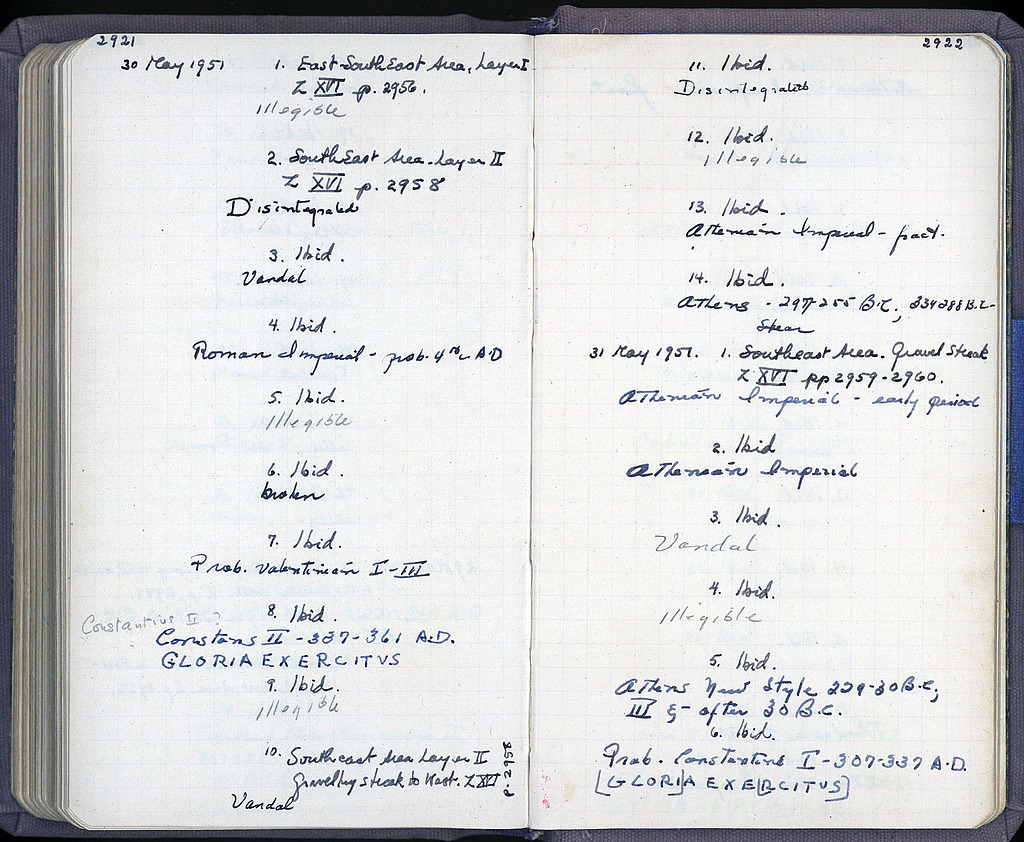 2921
30 May 1951 1. East-SouthEast Area, Layer I
Z XVI p. 2956.
Illegible
2. SouthEast Area. Layer II
Z XVI p. 2958
Disintegrated
3. Ibid.
Vandal
4. Ibid.
Roman Imperial - prob. 4th c A.D
5. Ibid.
Illegible
6. Ibid.
broken
7. Ibid.
Prob. Valentinian I-III
8. Ibid.
Constantius II ?
Constans II - 337-361 A.D.
GLORIA EXERCITVS
9. Ibid.
Illegible
10. Southeast Area Layer II
Gravelly streak to West. Z XVI
p. 2958
Vandal
2922
11. Ibid.
Disintegrated
12. Ibid.
Illegible
13. Ibid.
Athenian Imperial - fract.
14. Ibid.
Athens - 297-255 B.C.; 334-288 B.C-
Shear
31 May 1951. 1. Southeast Area. Gravel Streak
Z XVI pp 2959-2960.
Athenian Imperial - early period
2. Ibid
Athenian Imperial
3. Ibid.
Vandal
4. Ibid.
Illegible
5. Ibid.
Athens New Style 229-30 B.C;
III after 30 B.C.
6. Ibid.
Prob. Constantine I - 307-337 A.D.
[GLORI]A EXE[RCITVS]